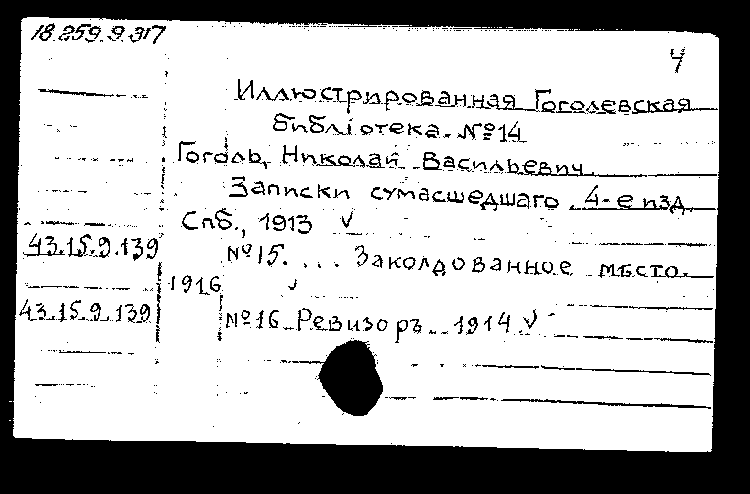 18.259.9.317
4
Иллюстрированная Гоголевская
библiотека. №14
Гоголь, Николай Васильевич.
Записки сумасшедшаго. 4-е изд.
Спб., 1913 ✓
43.15.9.139 №15. ... Заколдованное мѣсто.
1916 ✓
43.15.9.139 №16 Ревизоръ. 1914 ✓